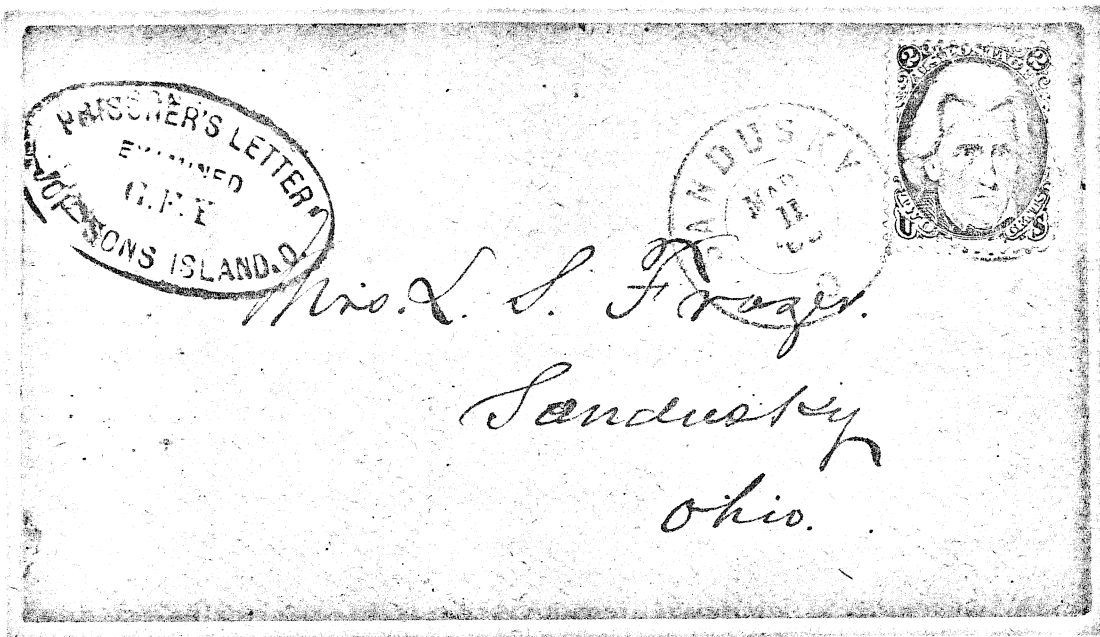 PRISONER'S LETTER
EXAMINED
JOHNSONS ISLAND.O.
SANDUSKY
MAR
11
2 2
U S
Mrs. L. S. Frazer.
Sandusky
Ohio.